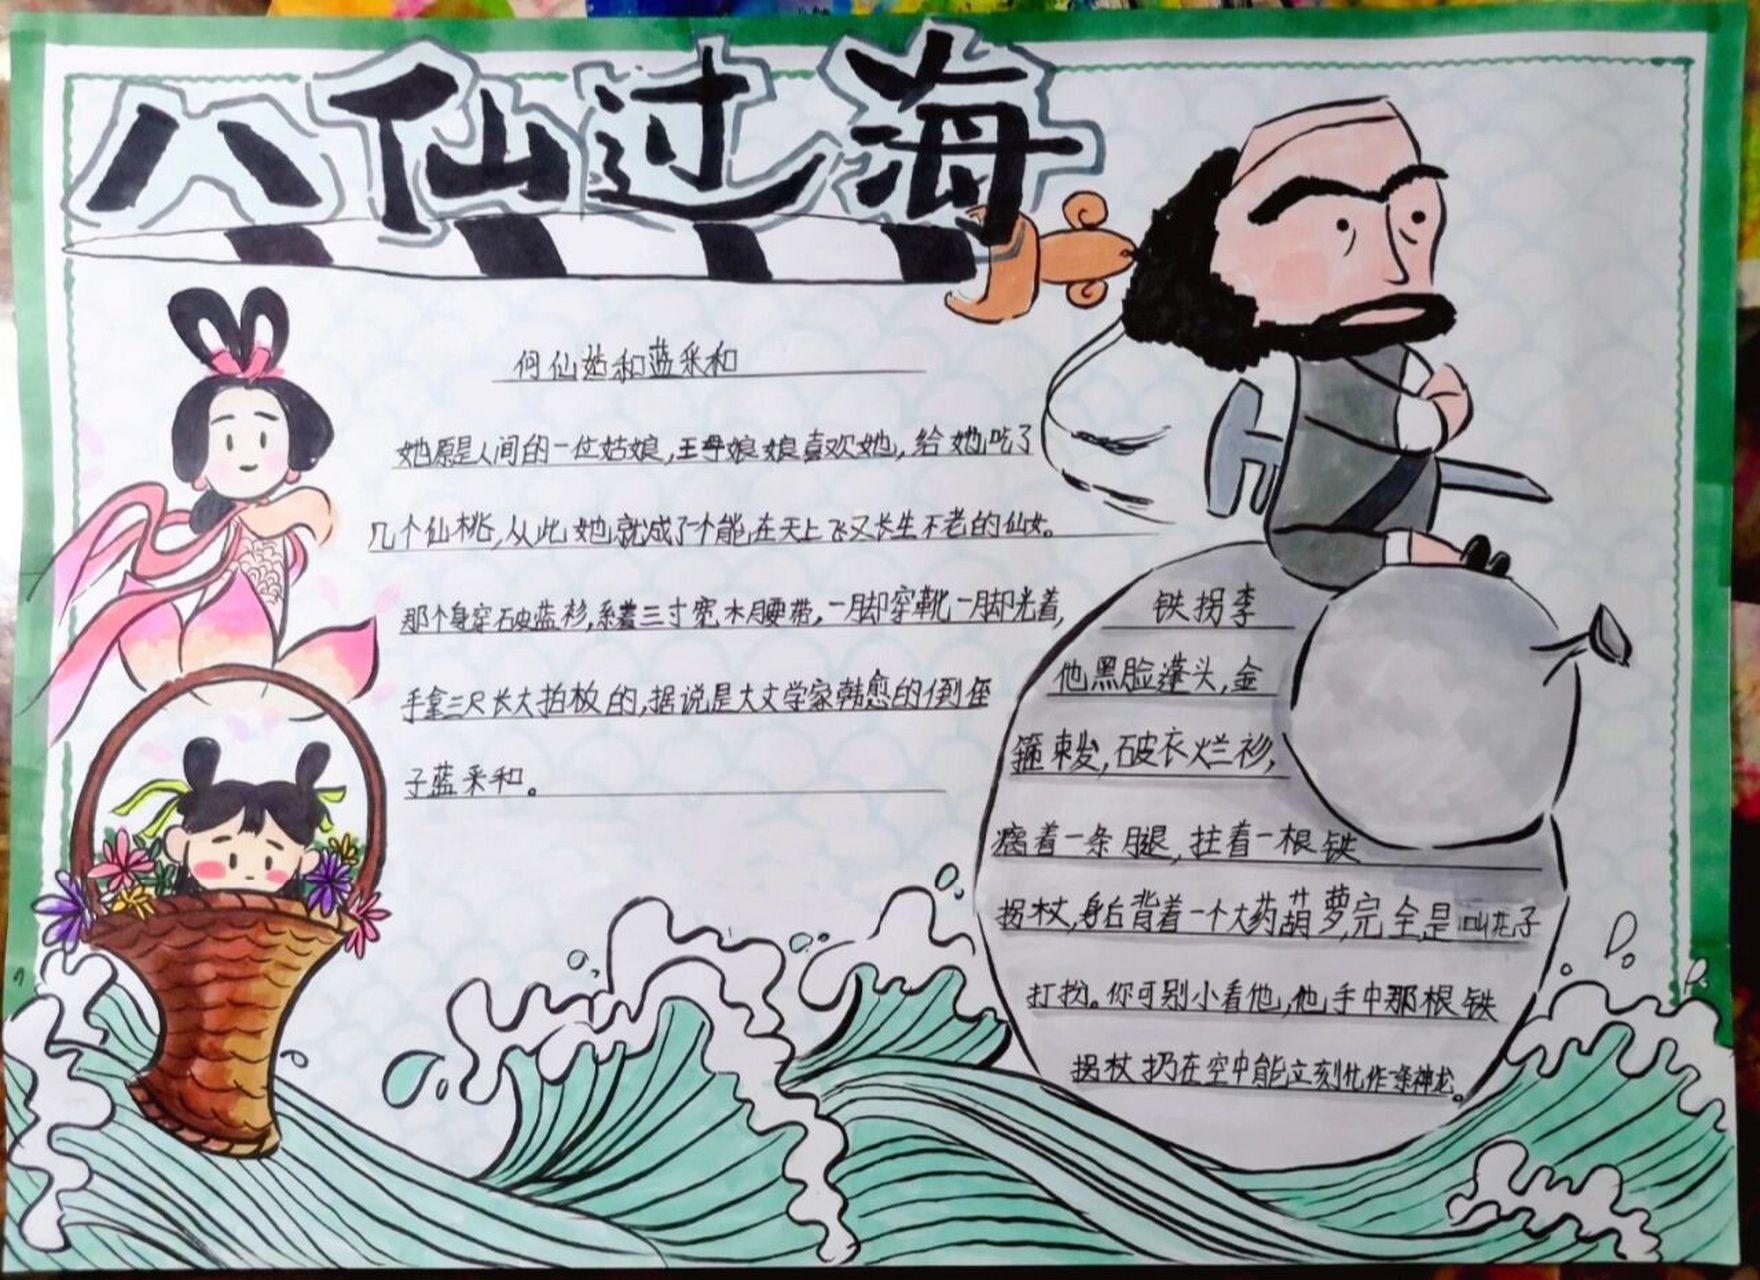 八仙过海
何仙姑和蓝采和
她原是人间的一位姑娘,王母娘娘喜欢她,给她吃了
几个仙桃,从此她就成了个能在天上飞又长生不老的仙女。
那个身穿破蓝衫,系着三寸宽木腰带,一脚穿靴一脚光着,
手拿三尺长大拍板的,据说是大文学家韩愈的倒侄
子蓝采和。
铁拐李
他黑脸蓬头,金
箍束发,破衣烂衫,
瘸着一条腿,拄着一根铁
拐杖,身后背着一个大药葫萝,完全是叫花子
打扮。你可别小看他,他手中那根铁
拐杖扔在空中能立刻化作条神龙。